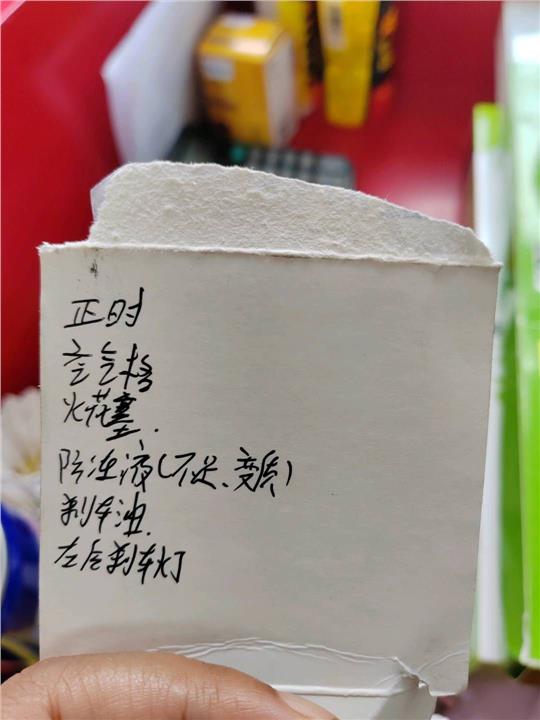 正时
空气格
火花塞.
防冻液(不足、变质)
刹车油.
左后刹车灯